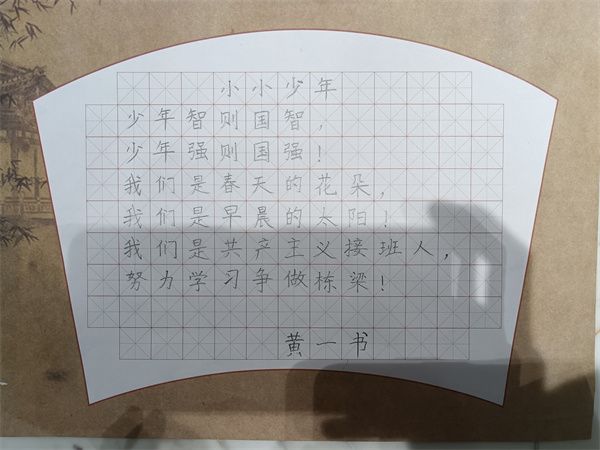 小小少年
少年智则国智，
少年强则国强！
我们是春天的花朵，
我们是早晨的太阳！
我们是共产主义接班人，
努力学习争做栋梁！
黄一书